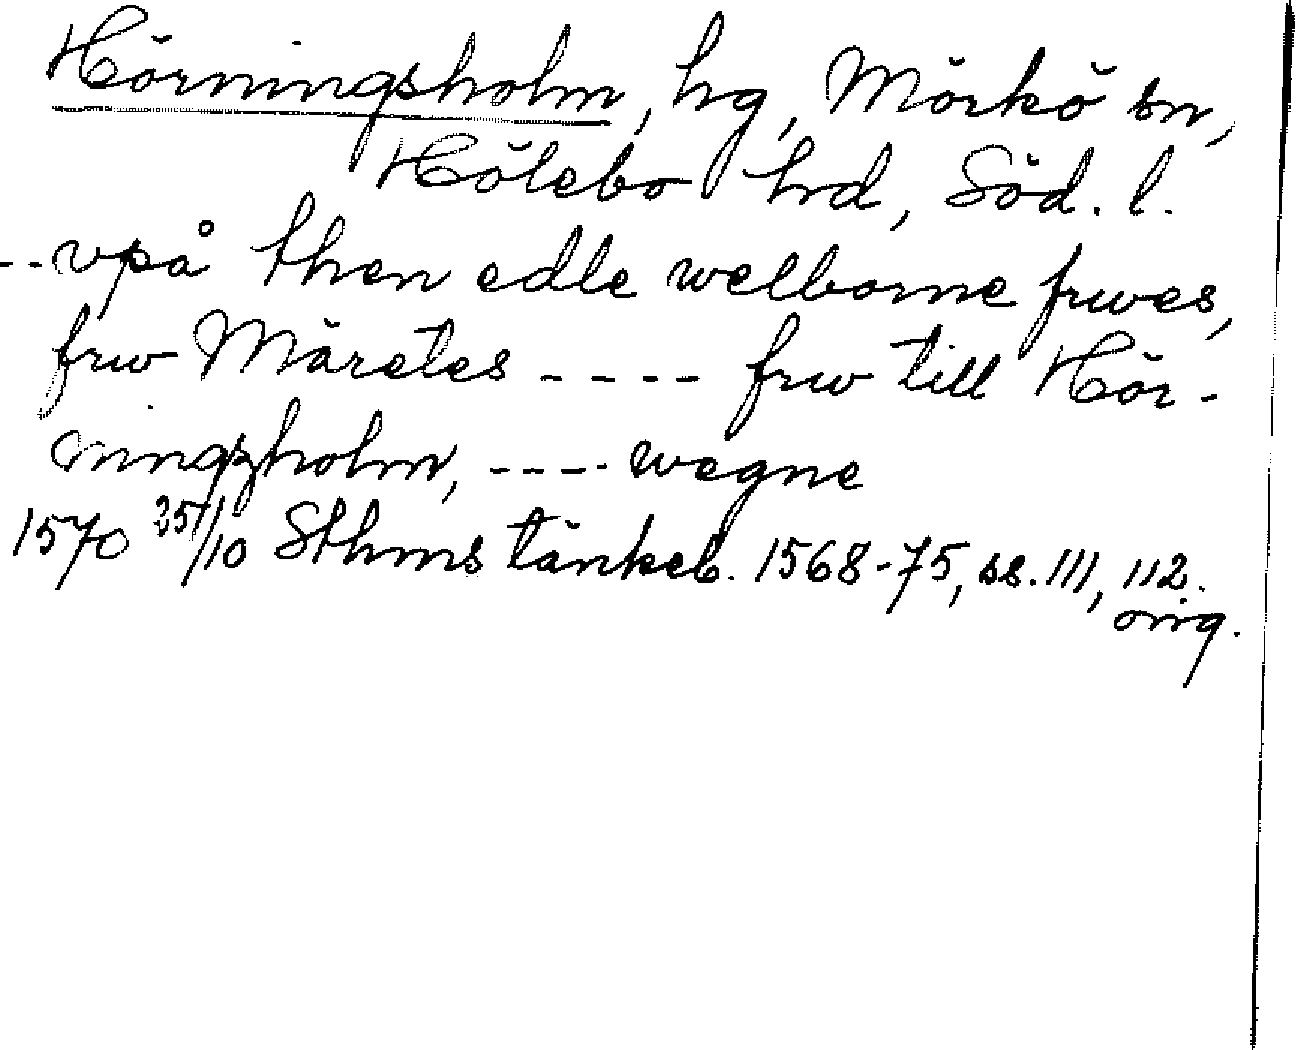 Hörningsholm, hg, Mörkö sn,
Hölebo hrd, Söd. l.
--vpå then edle welborne frwes,
frw Märetes ---- frw till Hör-
ningzholm, ---- wegne
1570 25/10 Sthms tänkeb. 1568-75, ss. 111, 112.
orig.